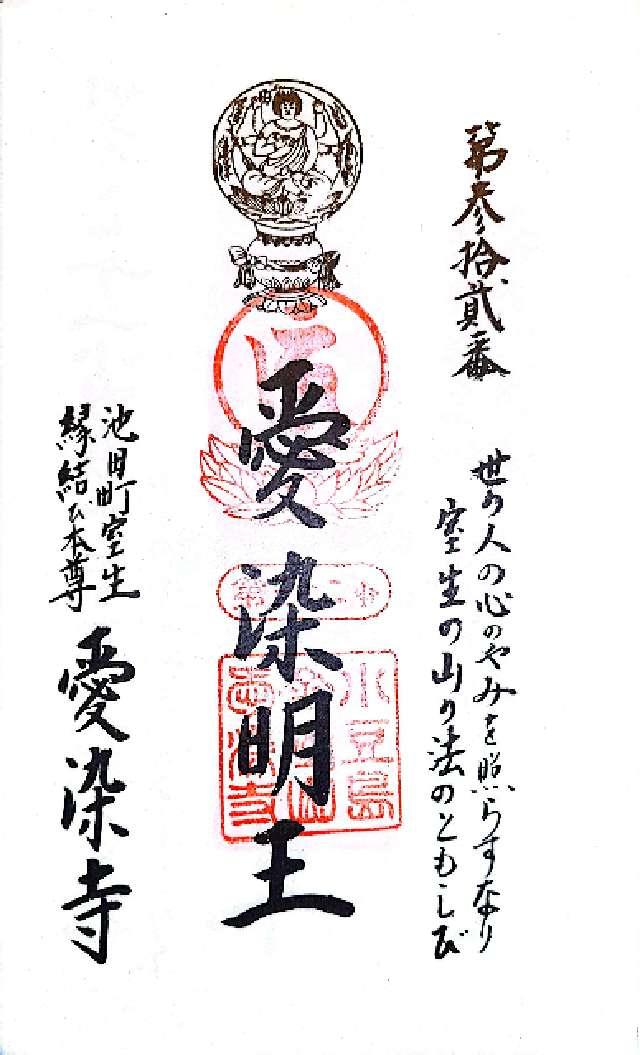 第参拾貳番
世の人の心のやみを照らすなり
室生の山の法のともしび
愛染明王
小豆島
池田町室生
縁結び本尊
愛染寺